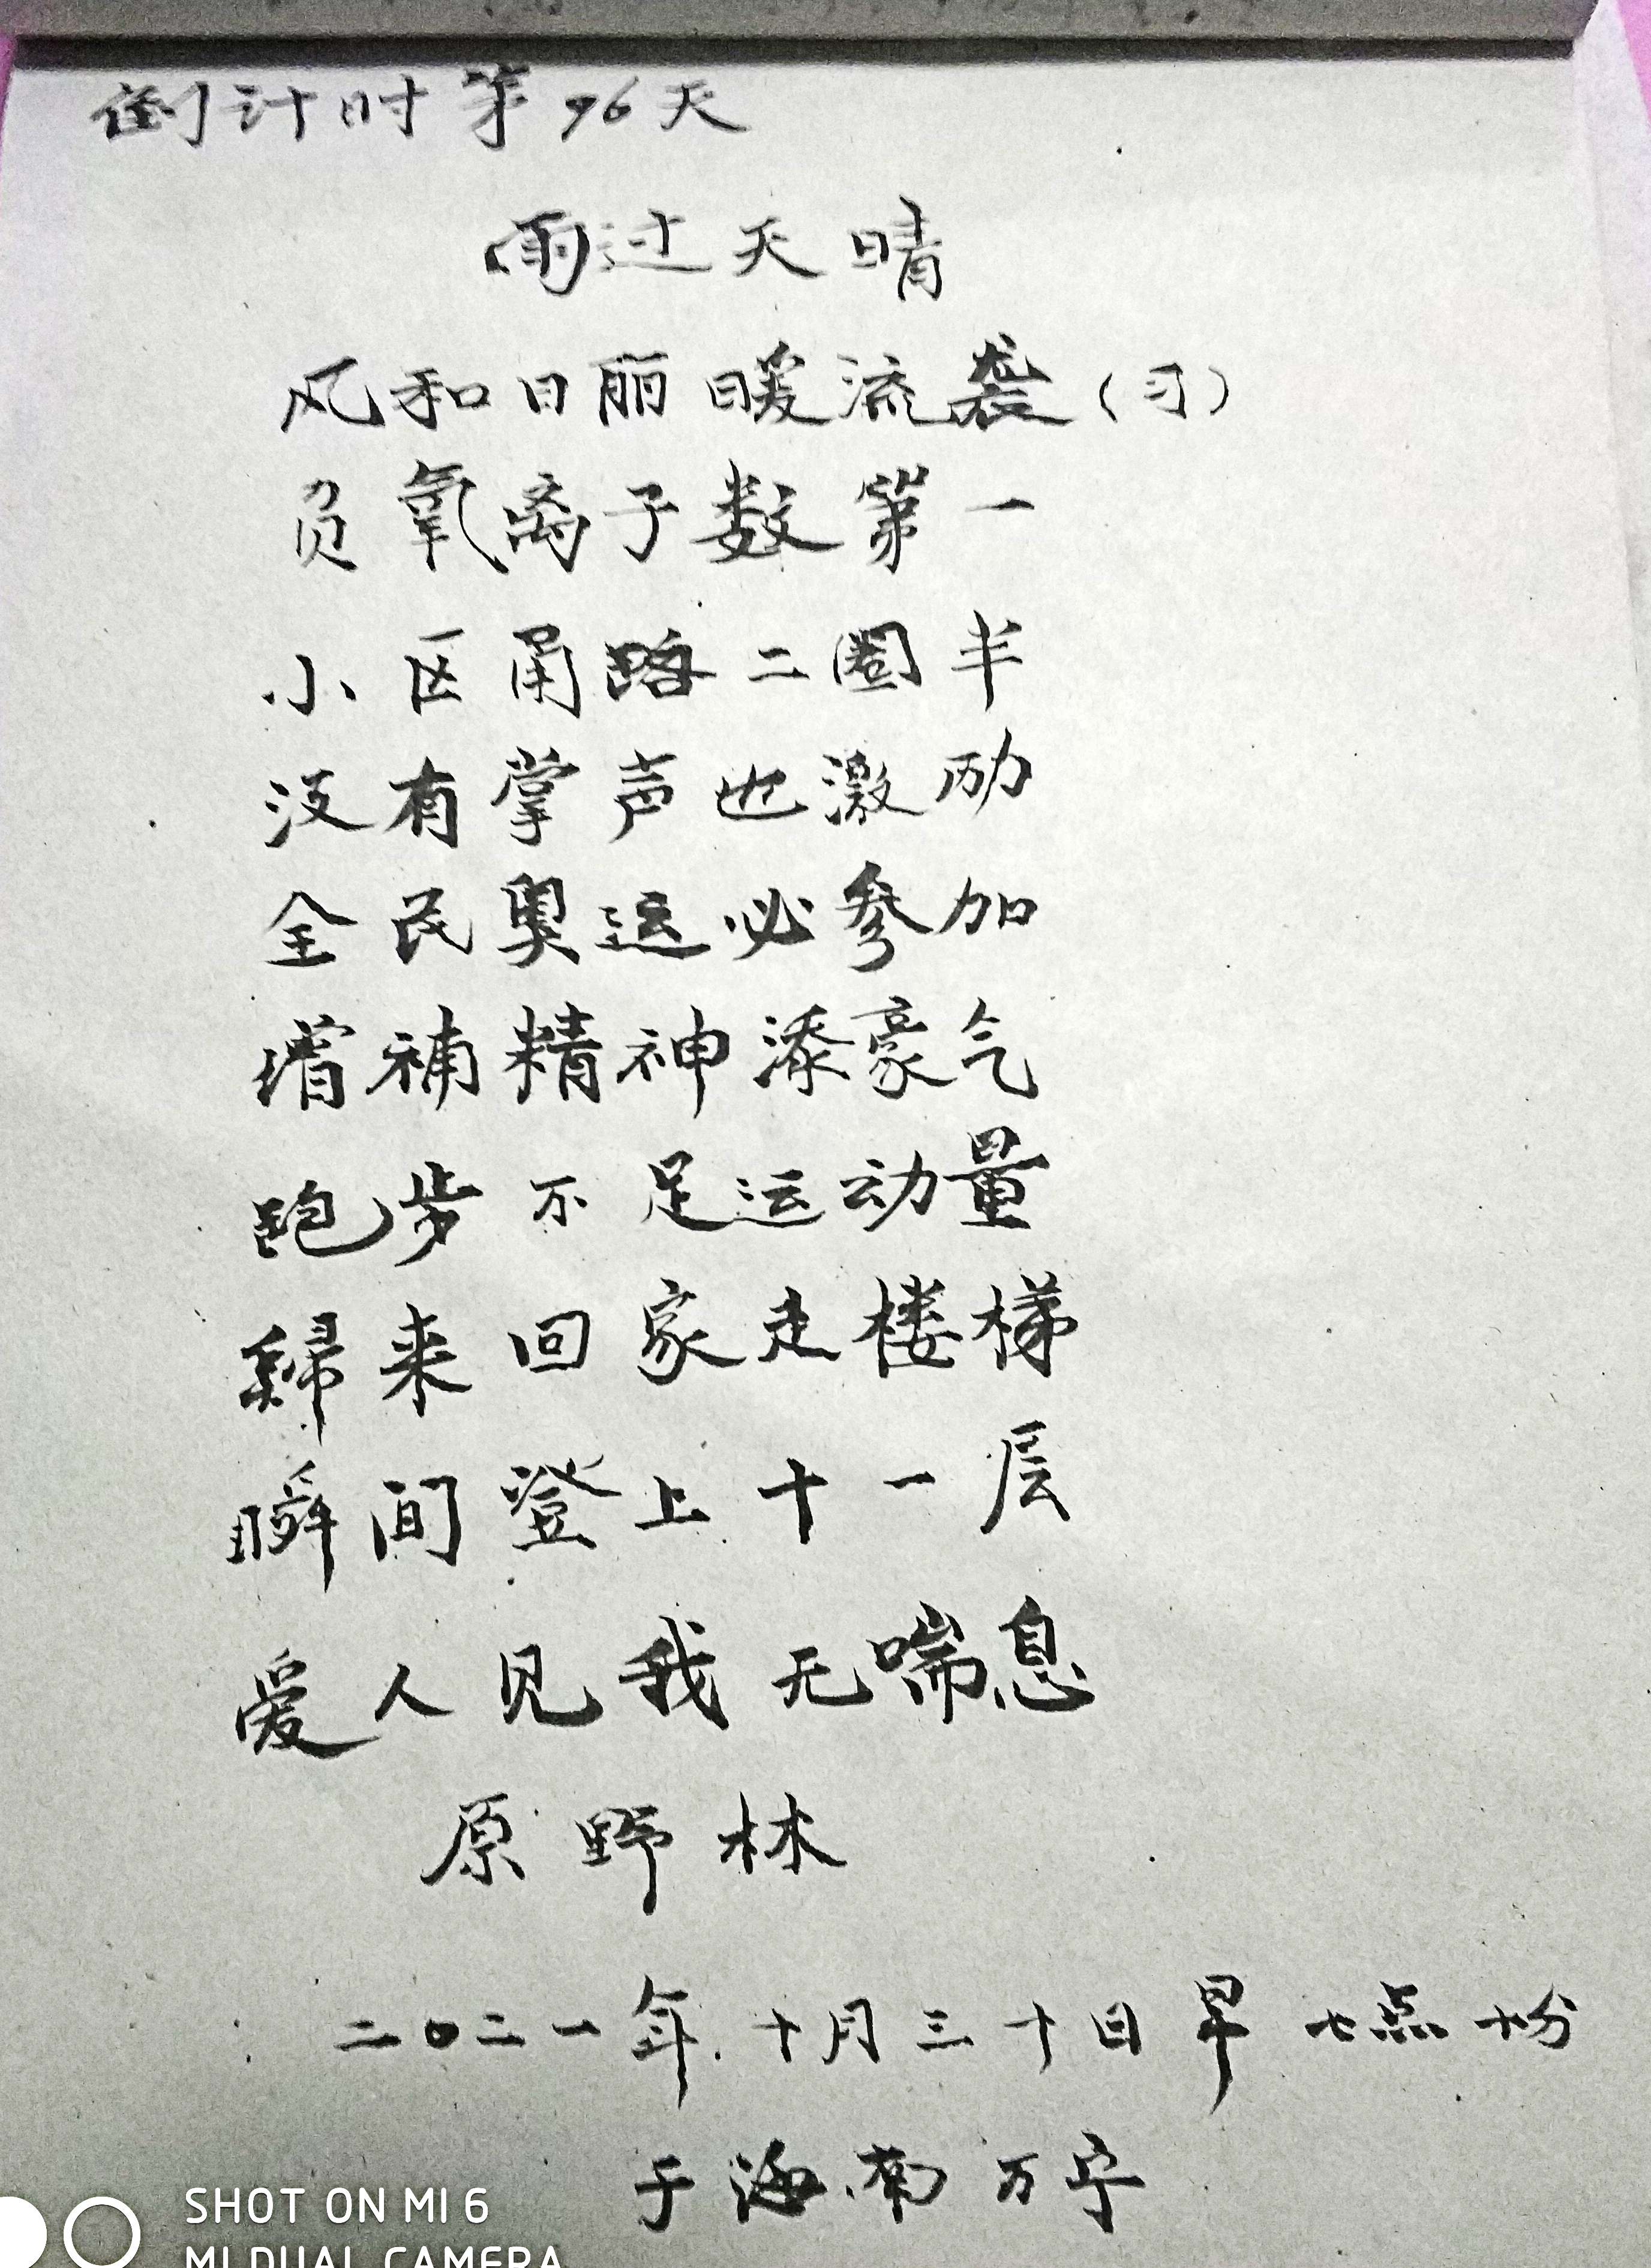 倒计时第96天
雨过天晴
风和日丽暖流袭(习)
负氧离子数第一
小区甬路二圈半
没有掌声也激励
全民奥运必参加
增补精神添豪气
跑步不足运动量
歸来回家走楼梯
瞬间登上十一层
爱人见我无喘息
原野林
二0二一年十月三十日早七点十分
于海南万宁
SHOT ON MI 6
MI DUAL CAMERA